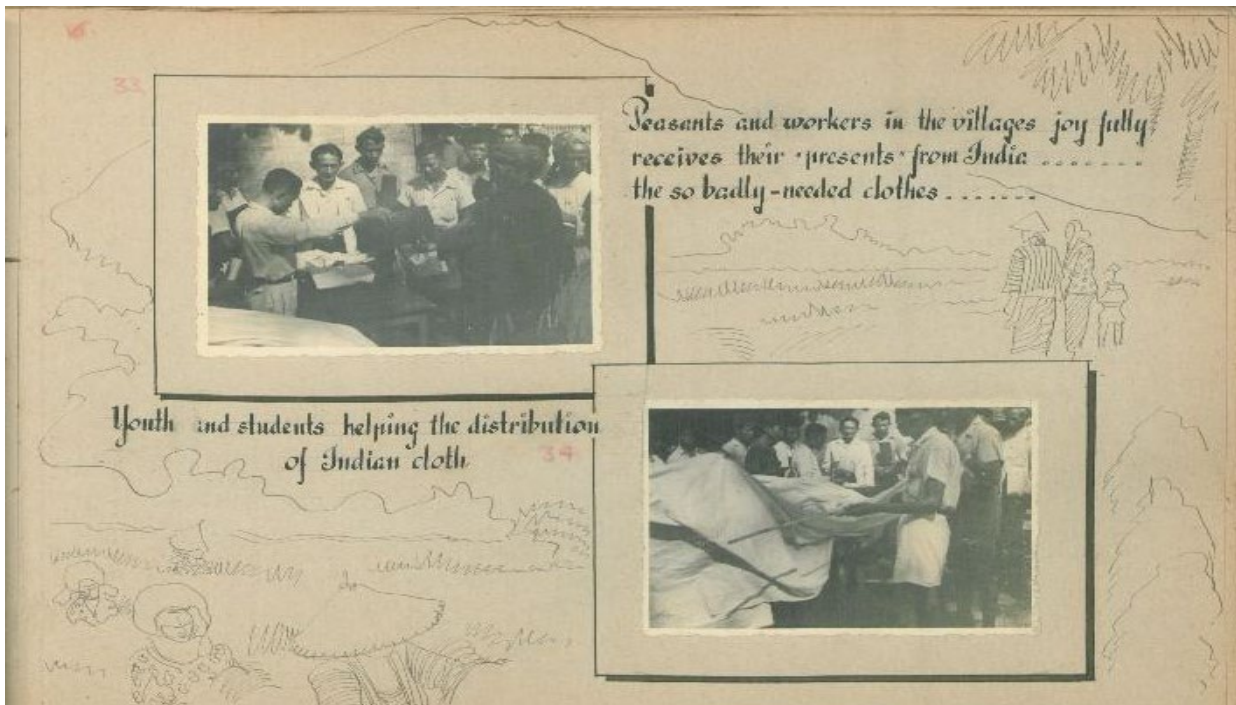 33
Peasants and workers in the villages joy fully
receives their "presents" from India .......
the so badly-needed clothes .......
Youth and students helping the distribution
of Indian cloth
34